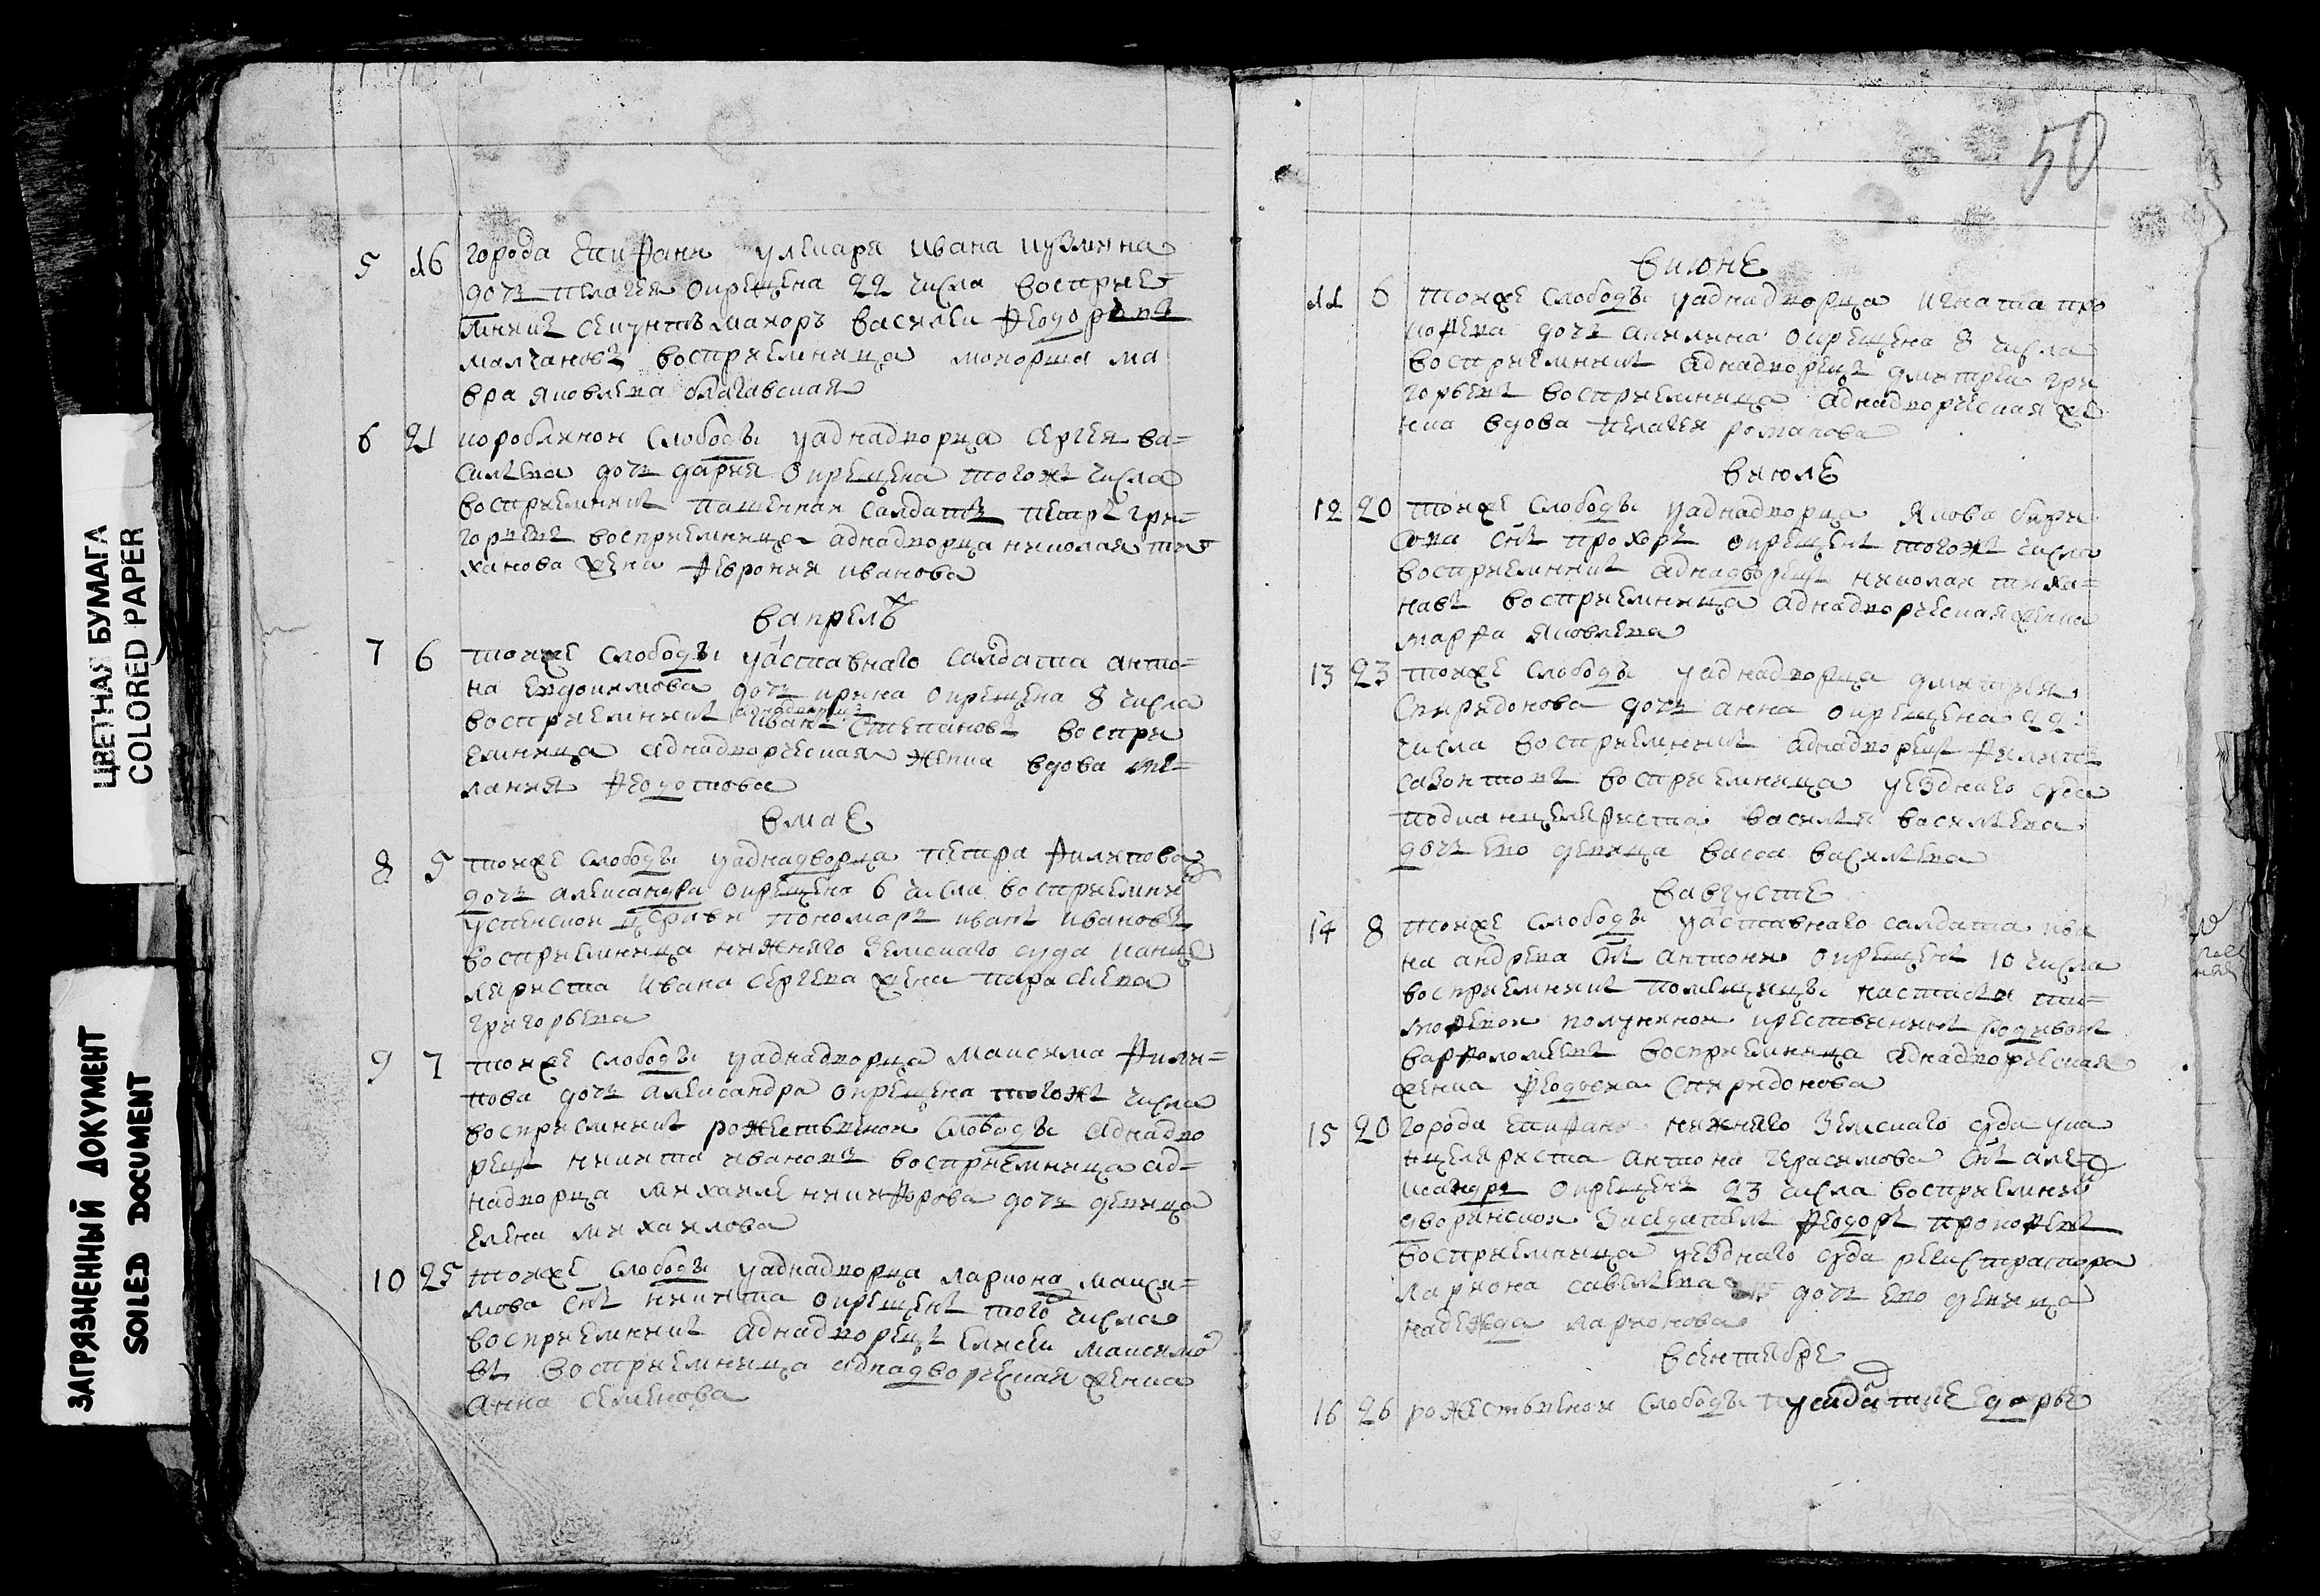 ЦВЕТНАЯ БУМАГА
COLORED PAPER
ЗАГРЯЗНЕННЫЙ ДОКУМЕНТ
SOILED DOCUMENT
5 16 города Епифани у лекаря ивана кузмина
дочь пелагея окрещена 22 числа восприе=
мникъ секунтъ маиоръ василеи Федоровъ
малчановъ восприемница маиорша ма
вра яковлева
6 21 слободы уаднадворца сергея ва=
сильева дочь дарья окрещена тогожъ числа
восприемникъ пашеннои салдатъ петръ гри=
горьевъ восприемница аднадворца николая ти
ханова жена Феврония иванова
в апрелѣ
7 6 тоиже слободы уаставнаго салдата анто=
на евдокимова дочь ирина окрещена 8 числа
восприемникъ аднадворецъ иванъ степановъ воспри
емница аднадворческая женка вдова ме=
лания Федотова
в мае
8 5 тоиже слободы уаднадворца петра Филипова
дочь александра окрещена 6 числа восприемник
успенскои церкви пономарь иванъ ивановъ
восприемница нижняго земскаго суда канце
ляриста ивана сергева жена параскева
григорьева
9 7 тоиже слободы уаднадворца максима Фили=
пова дочь александра окрещена тогожъ числа
восприемникъ рожественскои слободы аднадво
рецъ никита ивановъ восприемница ад=
надворца михаиле никиФорова дочь девица
елена михаилова
10 25 тоиже слободы уаднадворца лариона макси=
мова снъ никита окрещенъ того числа
восприемникъ аднадворецъ максимо
въ восприемница аднадворческая женка
анна семенова
50
в июне
11 6 тоиже слободы уаднадворца игната про
коФева дочь акилина окрещена 8 числа
восприемникъ аднадворецъ дмитреи гри
горьевъ восприемница аднадворческая же
нка вдова пелагея романова
в июле
12 20 тоиже слободы уаднадворца якова
снъ прохоръ окрещенъ тогожъ числа
восприемникъ аднадворецъ николаи тиха=
навъ восприемница аднадворческая женка
марфа яковлева
13 23 тоиже слободы уаднадворца дмитрея
спиридонова дочь анна окрещена 22:
числа восприемникъ аднадворецъ Филипъ
сазонтовъ восприемница уезднаго суда
подканцеляриста василья васильева
дочь ево девица васса васильева
в августе
14 8 тоиже слободы уаставнаго салдата ива
на андрева снъ антони окрещенъ 10 числа
восприемникъ помещицы настасьи ти=
моФевои крестьянинъ
варФоломеевъ восприемница аднадворческая
женка Федосья спиридонова
15 20 города епиФани нижняго земскаго суда ука
нцеляриста антона герасимова снъ алек
сандръ окрещенъ 23 числа восприемник
дворянскои заседатель Федоръ прокоФевъ
восприемница уезднаго суда регистратора
лариона савельева дочь ево девица
надежда ларионова
в сентебре
16 26 рожественскои слободы усалдатке дарье